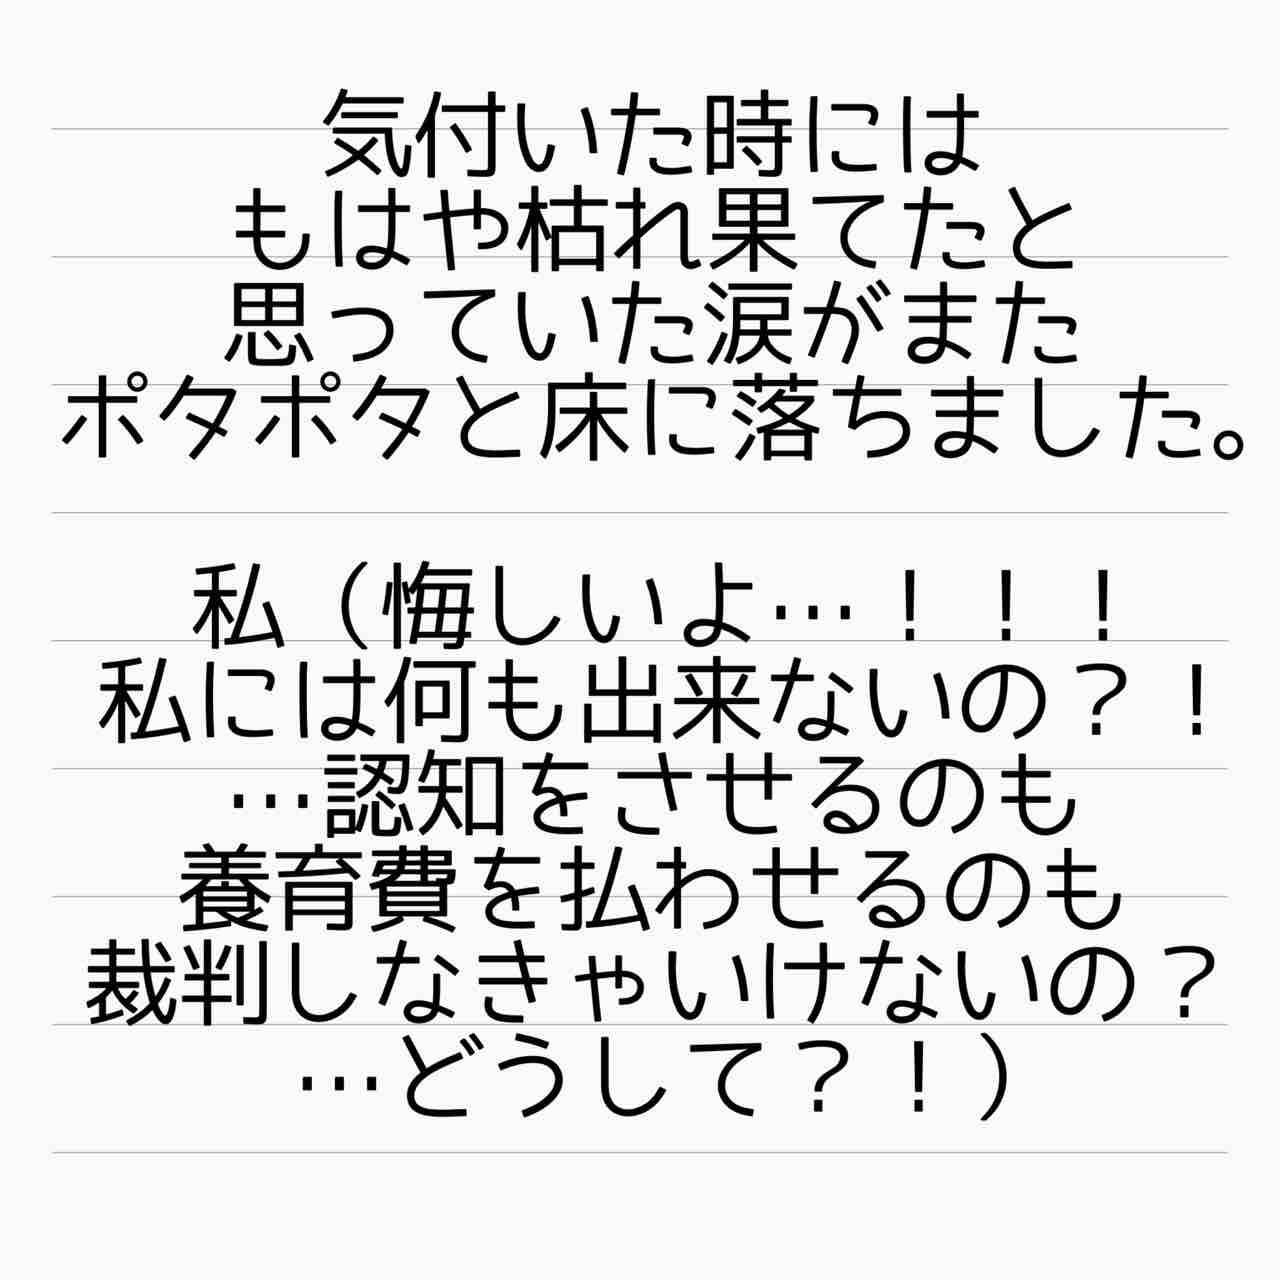 気付いた時には
もはや枯れ果てたと
思っていた涙がまた
ポタポタと床に落ちました。
私（悔しいよ…！！！
私には何も出来ないの？！
…認知をさせるのも
養育費を払わせるのも
裁判しなきゃいけないの？
…どうして？！）